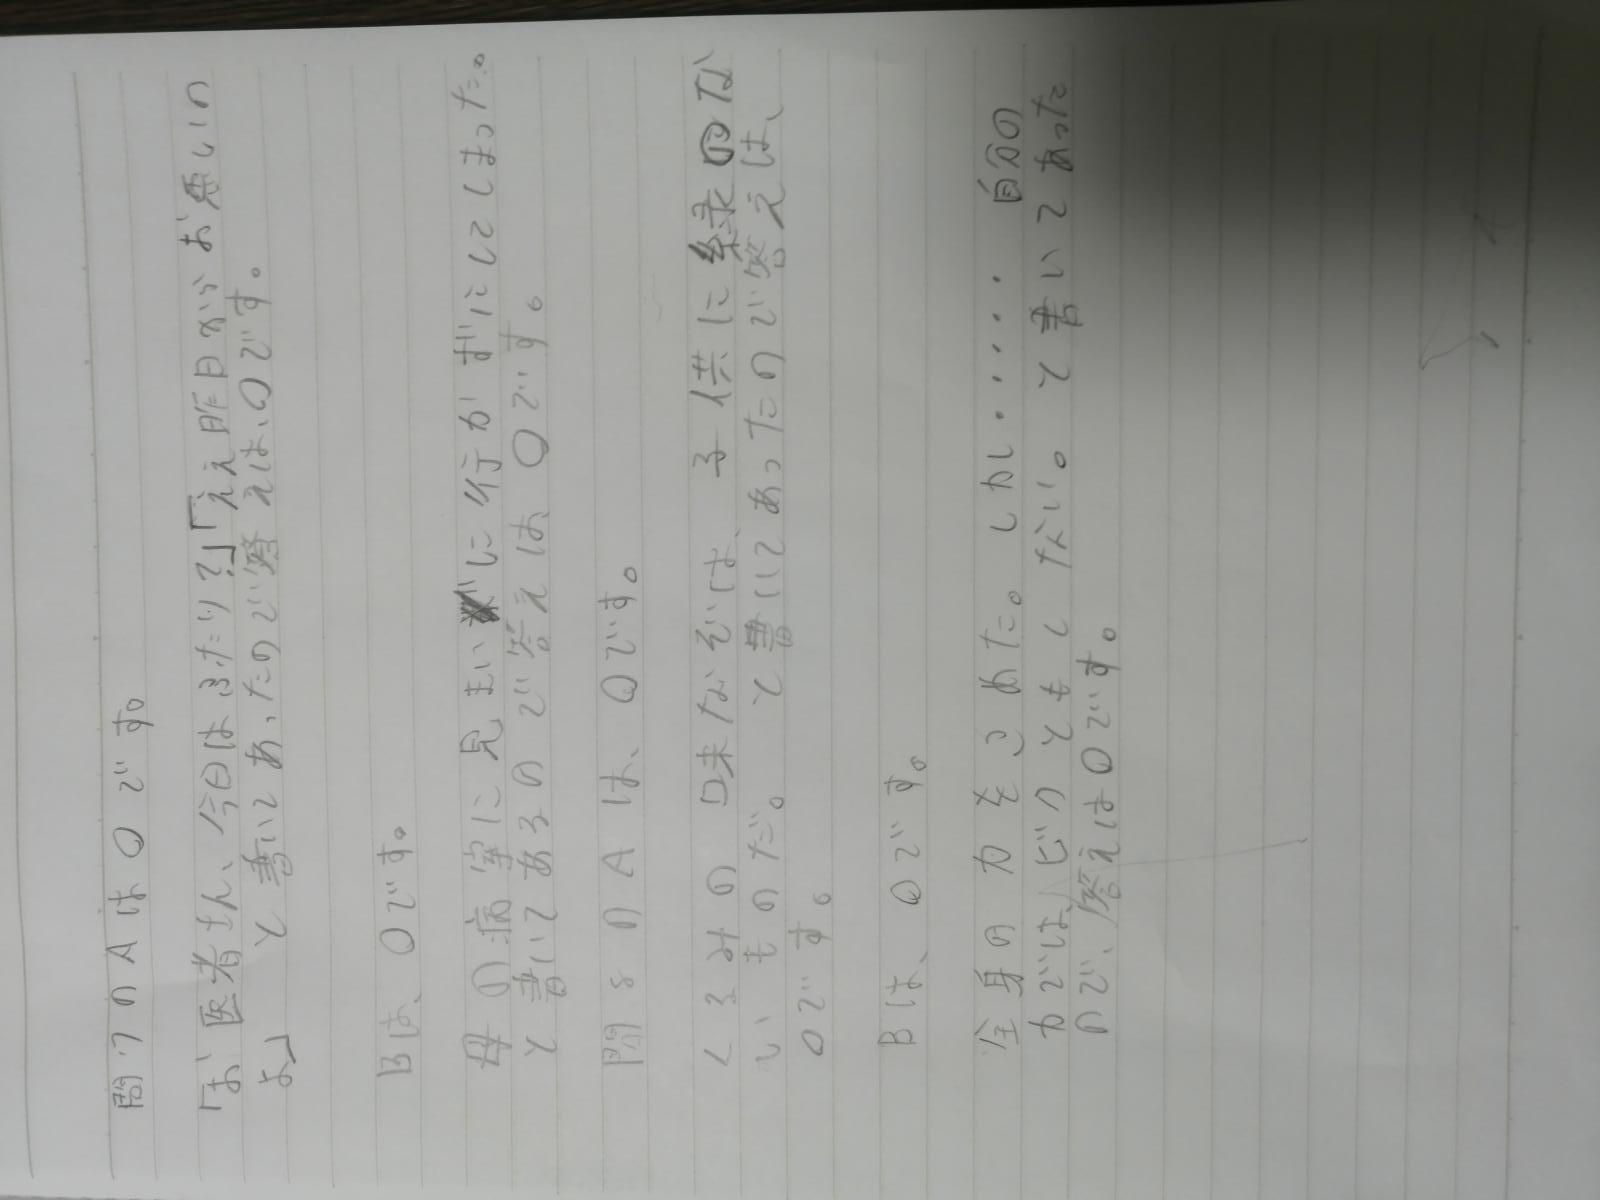 問7のAは〇です。
「お医者さん、今日はふたり?」「ええ昨日からお悪いの
よ」 と書いてあったので答えは、〇です。
Bは、〇です。
母の病室に見まいに行かずにいてしまった。
と書いてあるので答えは、〇です。
問8のAは、〇です。
くるみの 口末なぞは、子供に縁のな
いものだ。 と書いてあったので答えは、
〇です。
Bは、〇です。
全身の力をこめた。しかし・・・・・自分の
力では、ビクともしない。と書いてあった
ので、答えは〇です。